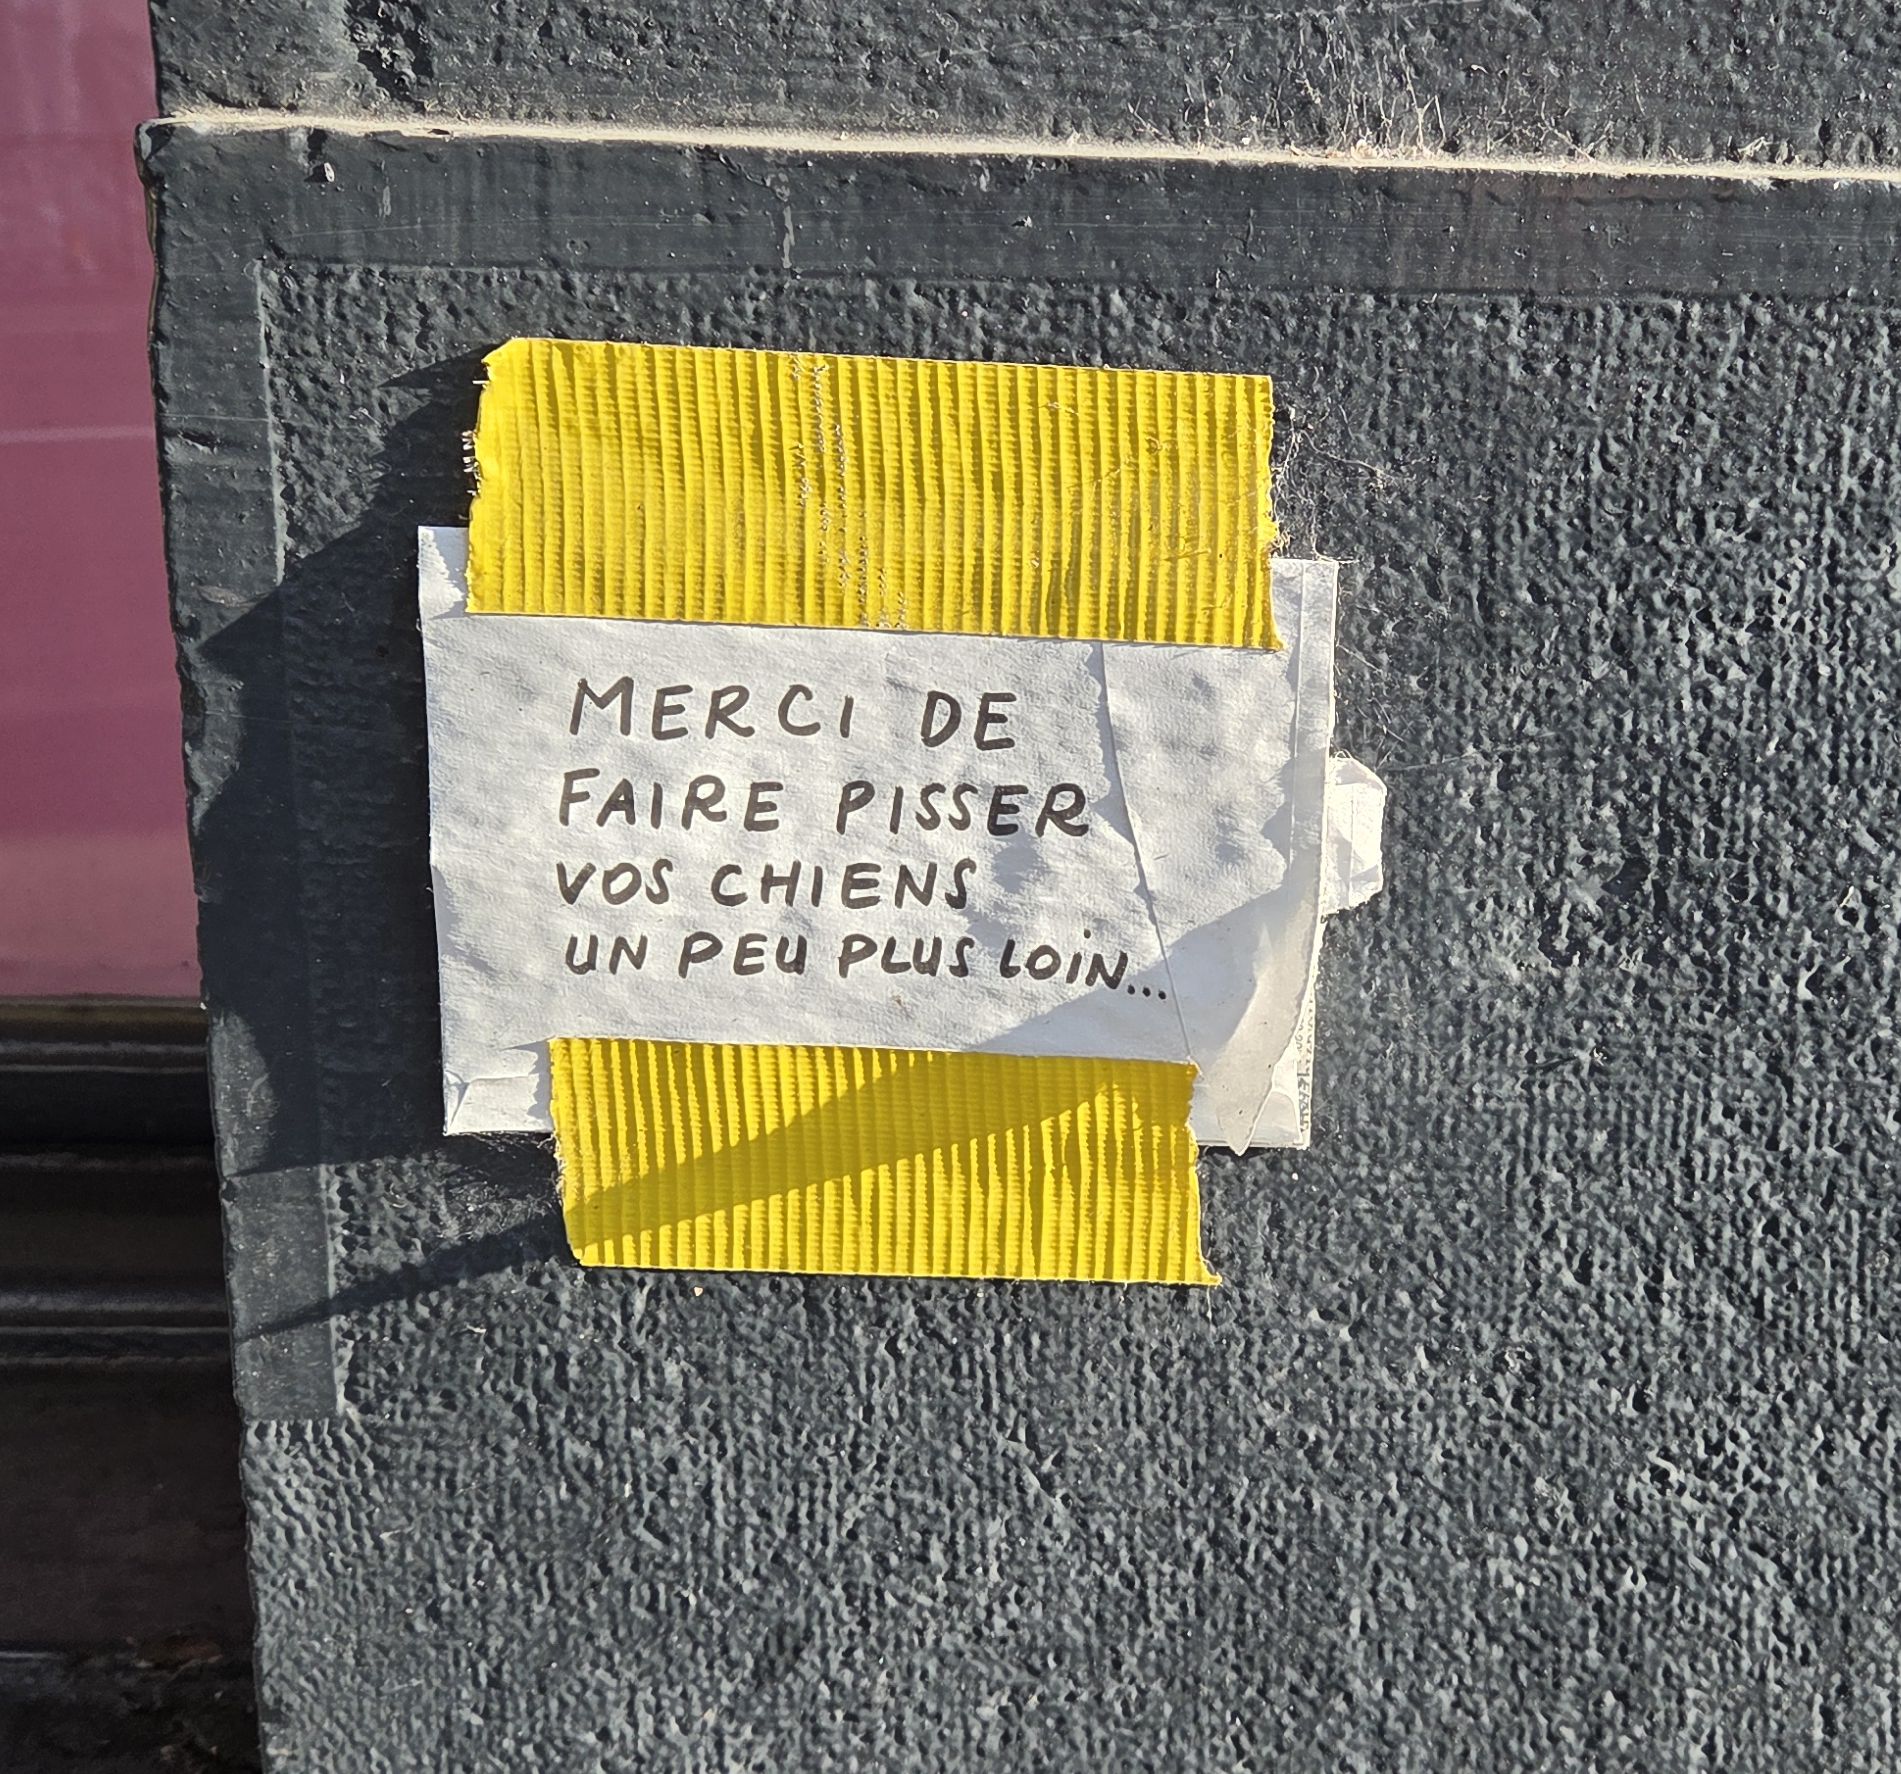 MERCI DE
FAIRE PISSER
VOS CHIENS
UN PEU PLUS LOIN...